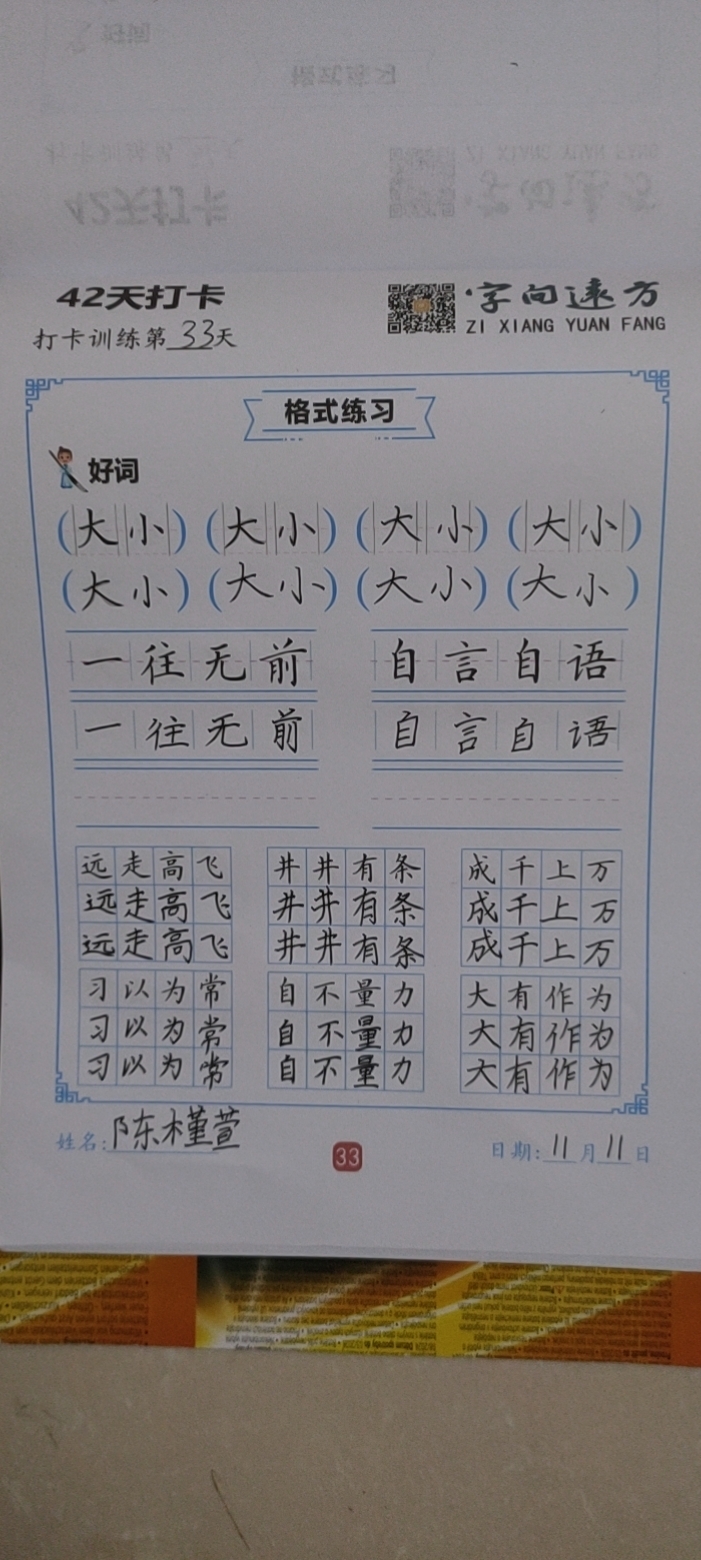 42天打卡
字向远方
打卡训练第33天
ZI XIANG YUAN FANG
格式练习
好词
(大小) (大小) (大小) (大小)
(大小) (大小) (大小) (大小)
一往无前 自言自语
一往无前 自言自语
远走高飞 井井有条 成千上万
远走高飞 井井有条 成千上万
远走高飞 井井有条 成千上万
习以为常 自不量力 大有作为
习以为常 自不量力 大有作为
习以为常 自不量力 大有作为
姓名:陈槿萱 33 日期:11月11日